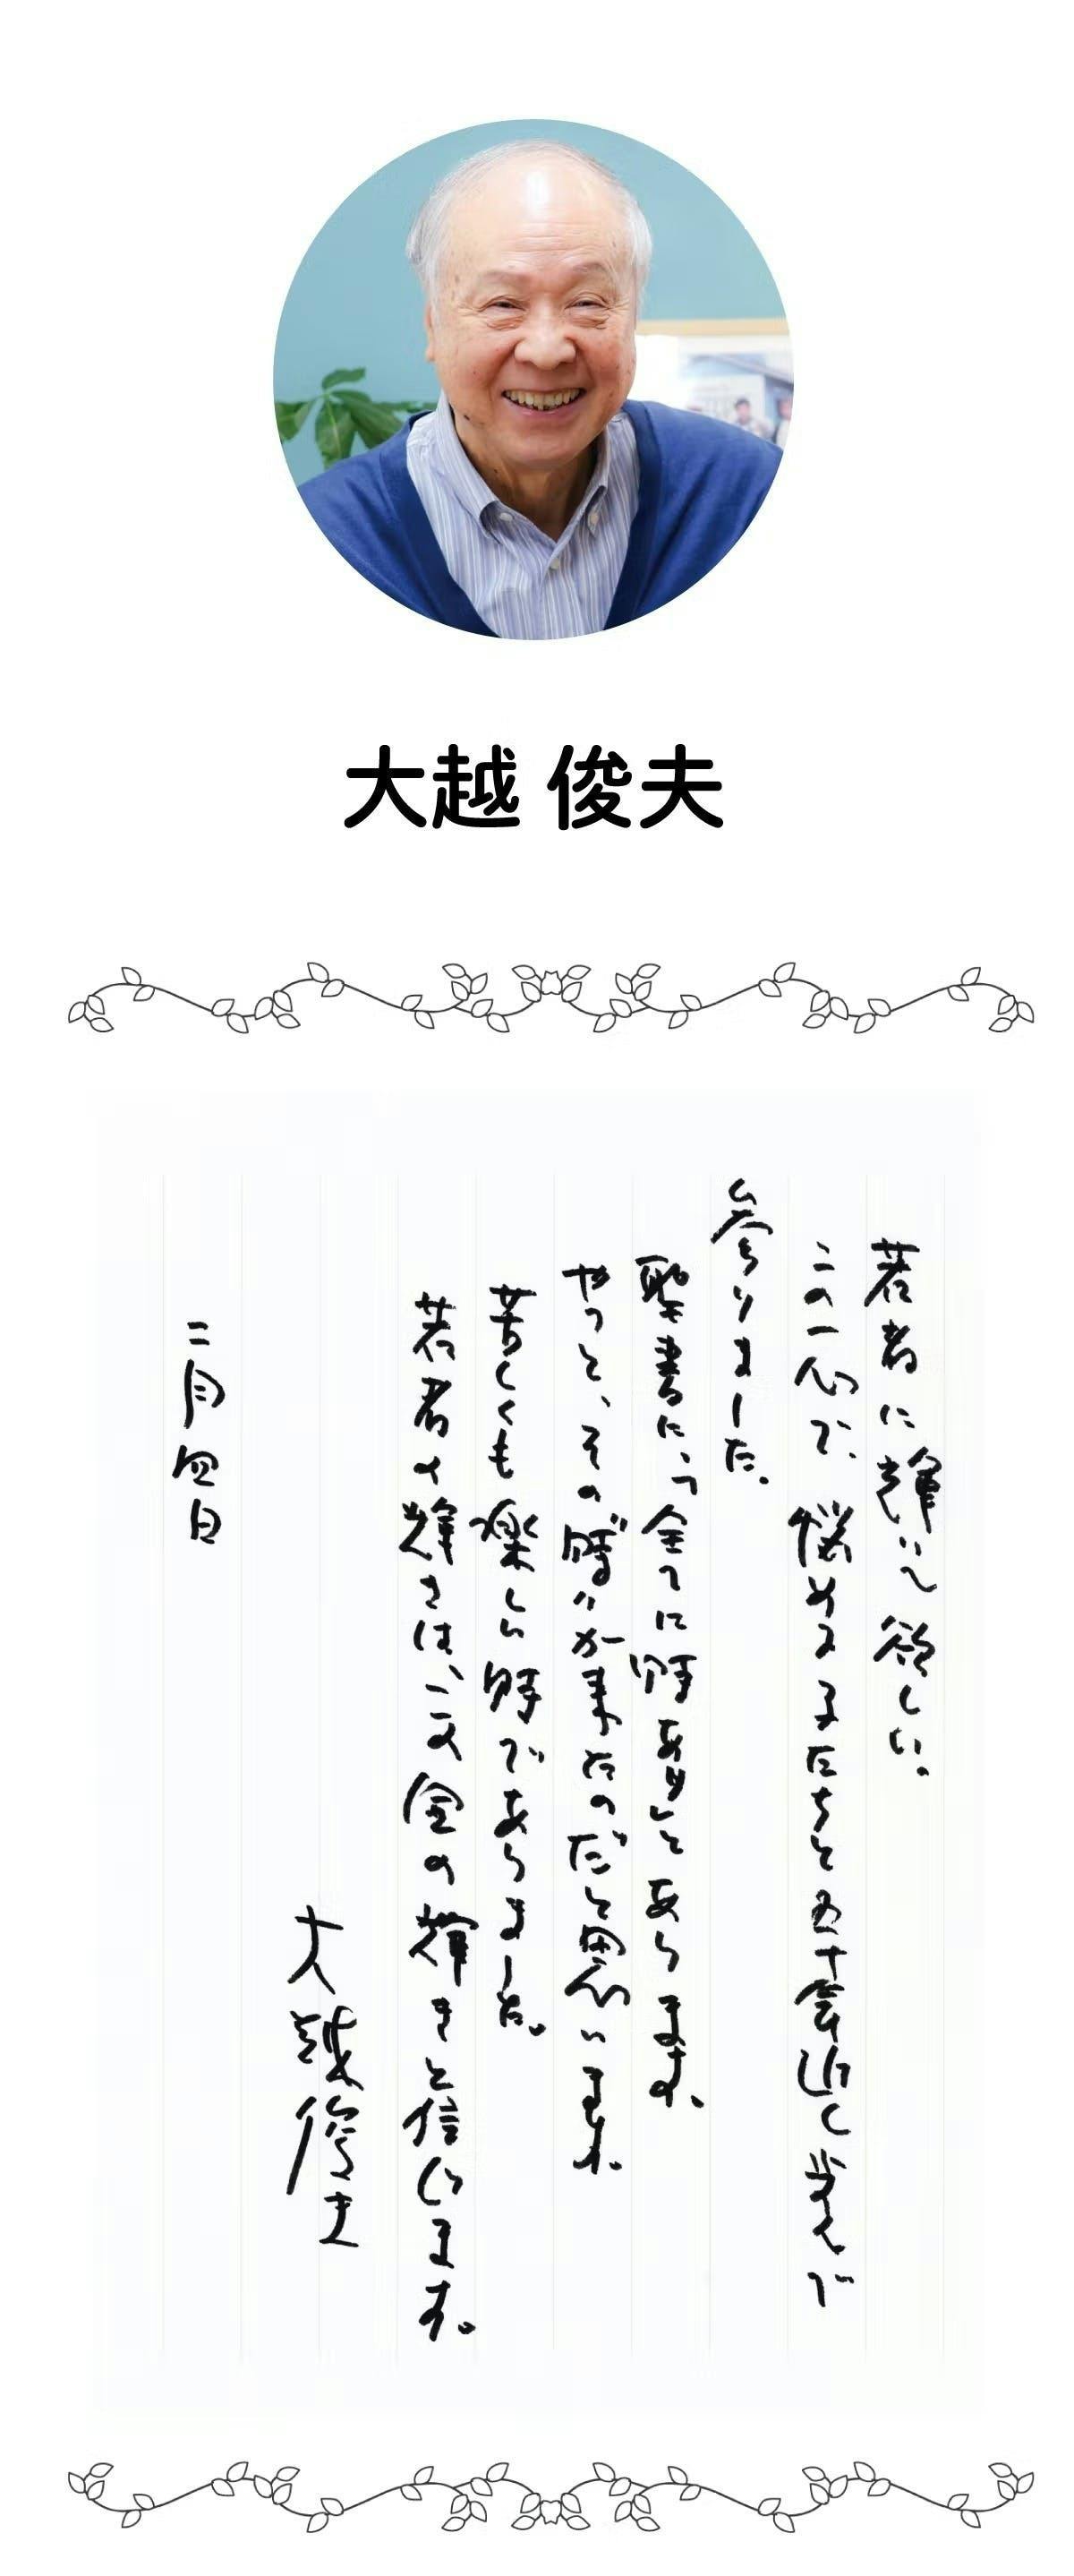 大越 俊夫
若者に輝いて欲しい。
この一心で、悩める子たちと五十年近く歩んで
参りました。
聖書に、「全てに時あり」とあります。
やっと、その"時"が来たのだと思います。
苦しくも楽しい時でありました。
若者の輝きは、二文全の輝きと信じます。
大越俊夫
二月四日